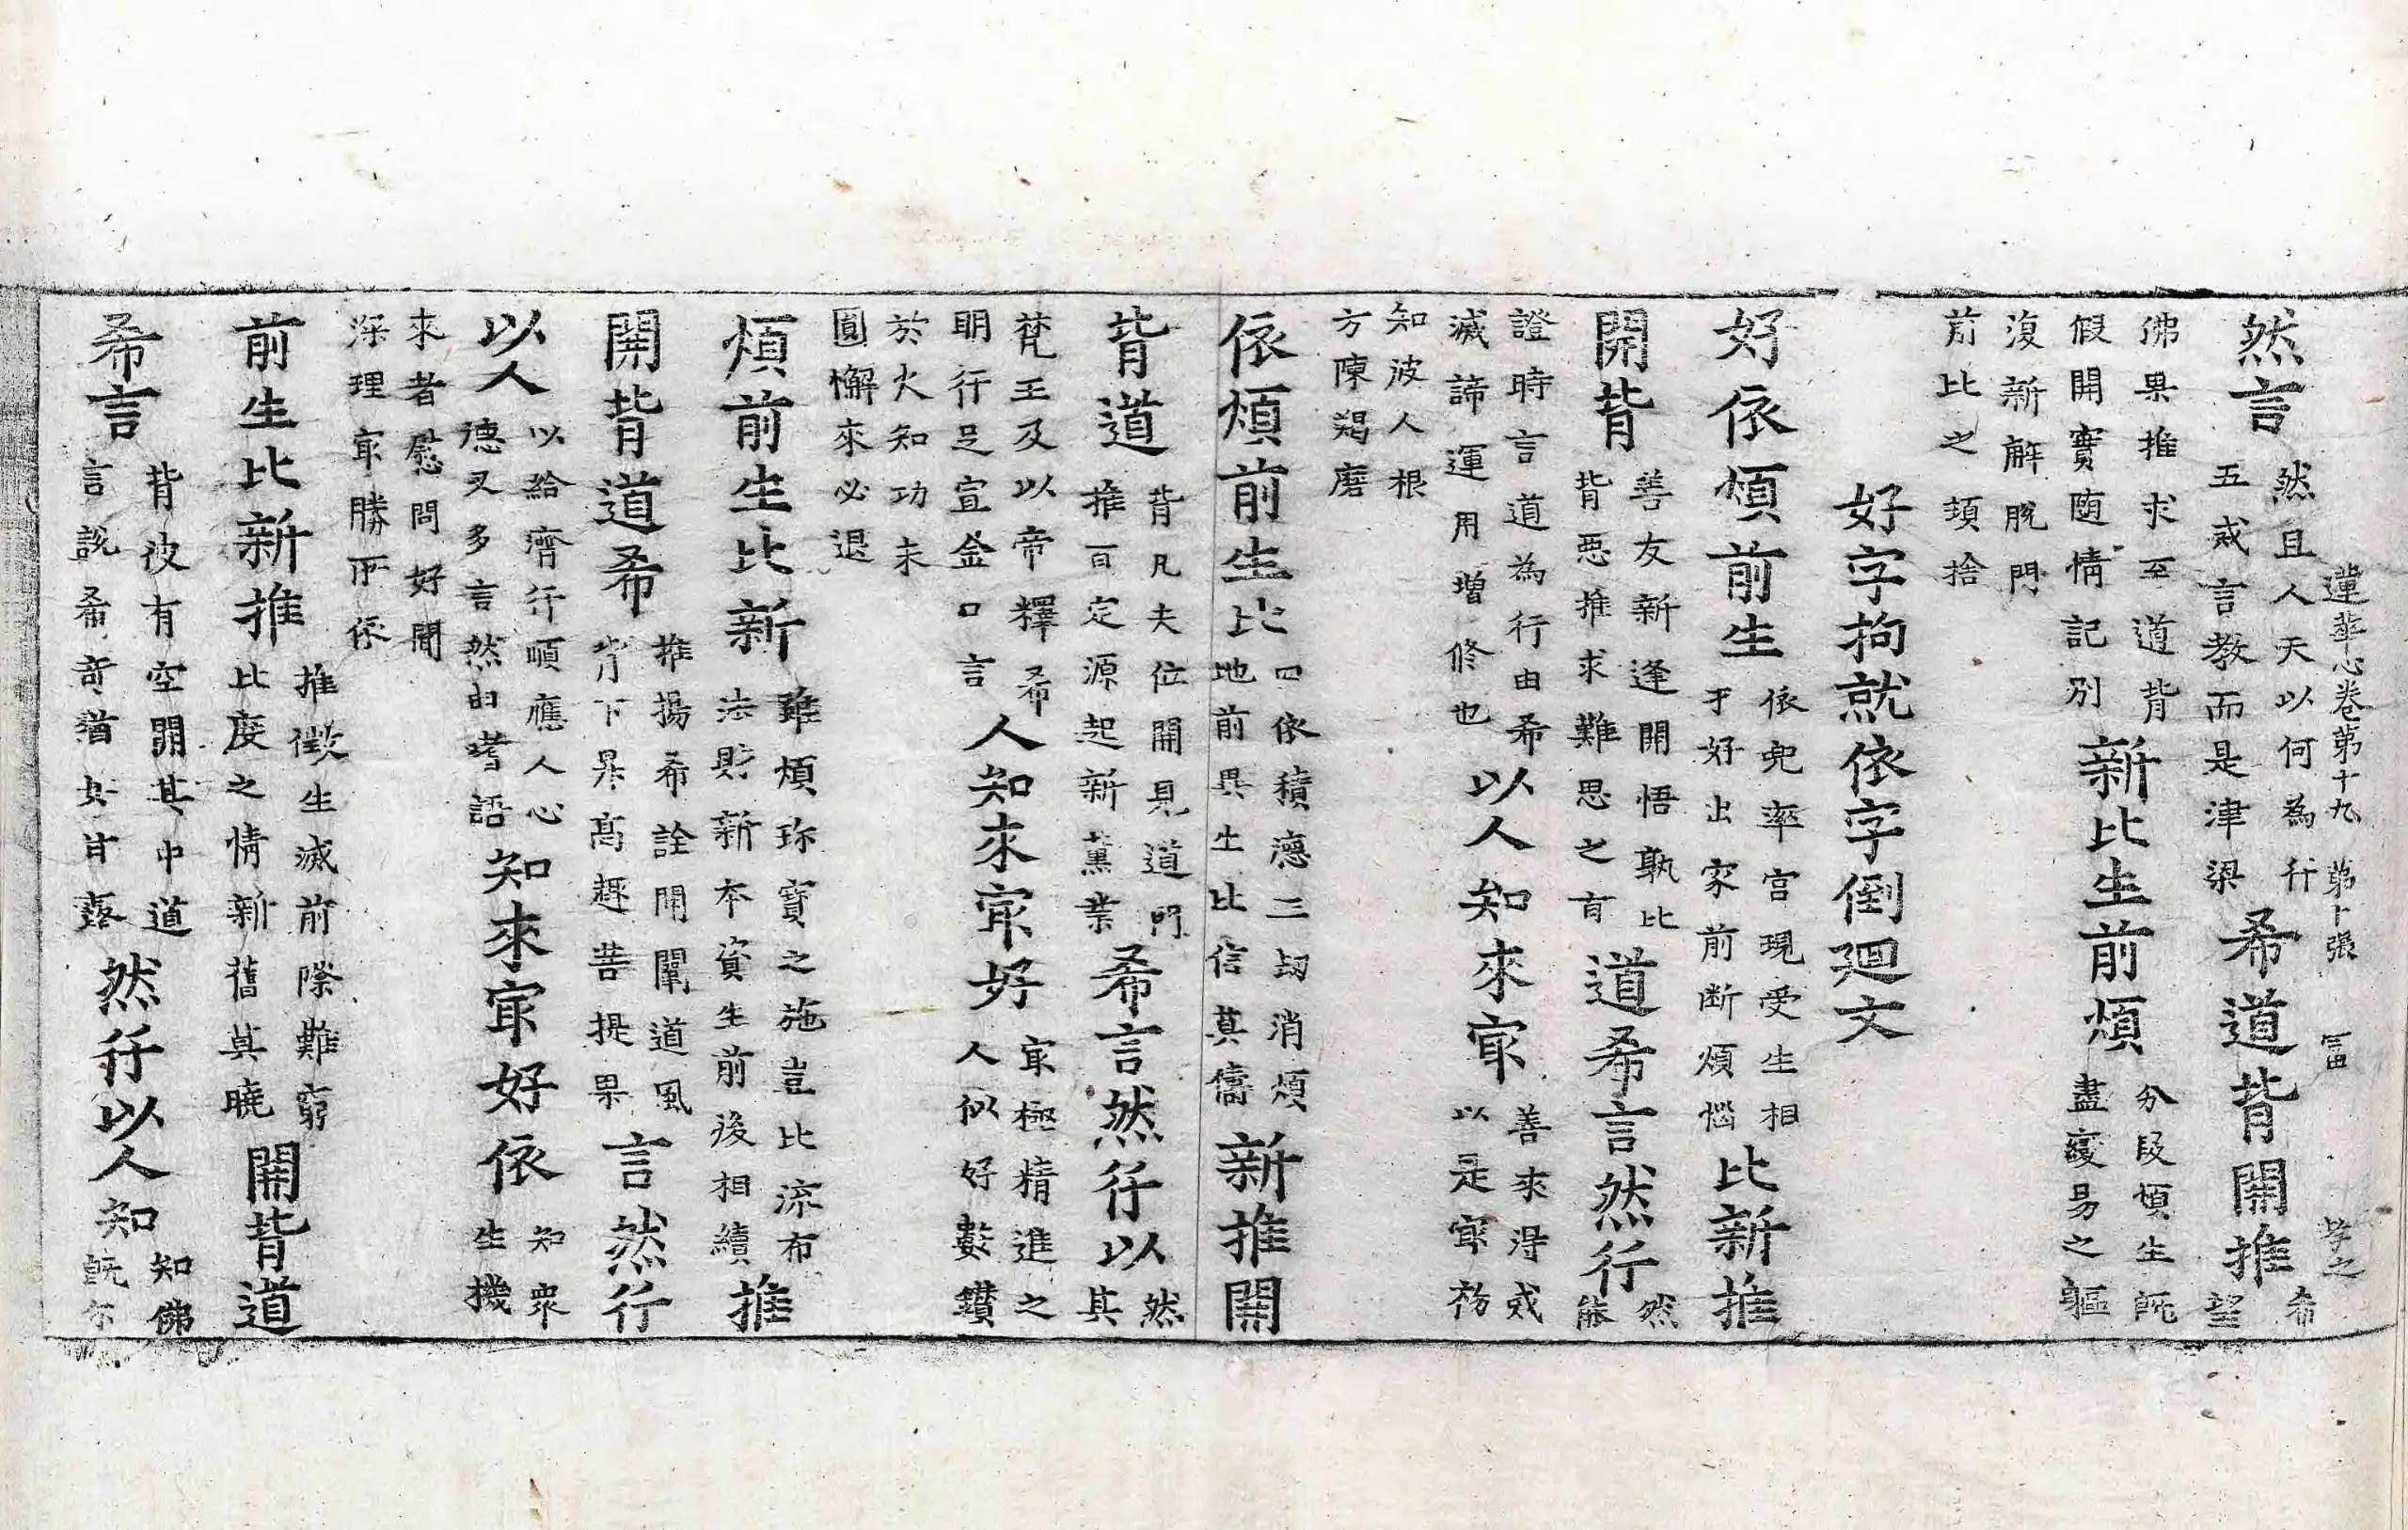 蓮華心卷第十九 第十張 冨 孝之
然言 然且人天以何為行
五戒言教而是津梁 希道背開推 希
望
佛果推求至道背
假開實随情記別 新比生前煩 分段煩生既
盡變易之軀
復新解脫門
前比之頭捨
好字拘就依字倒廻文
好依煩前生 依兜率宮現受生相
才好出家前断煩惱 比新推
開背 善友新逢開悟孰比
背惡推求難思之有 道希言然行 然
能
證時言道為行由希
滅諦運用增修也 以人知來㝡 善來淂戒
以是㝡初
知波人根
方陳羯磨
依煩前生比 四依積德三劫消煩
地前異生比信莫儔 新推開
背道 背凡夫位開見道門
推百定源起新薰業 希言然行以 然
其
梵王及以帝釋希
明行足宣金口言 人知來㝡好 㝡極精進之
人似好數鑽
於火知功未
圓懈來必退
煩前生比新 雖煩珎寶之施豈比流布
法財新本資生前後相續 推
開背道希 推揚希詮開闡道風
背下昇高趣菩提果 言然行
以人 以給濟行順應人心
德又多言然由嗜語 知來㝡好依 知衆
生機
來者慰問好聞
深理㝡勝所依
前生比新推 推徵生滅前際難窮
比度之情新舊莫曉 開背道
希言 背彼有空開其中道
言說希奇猶如甘露 然行以人知 知佛
既尓